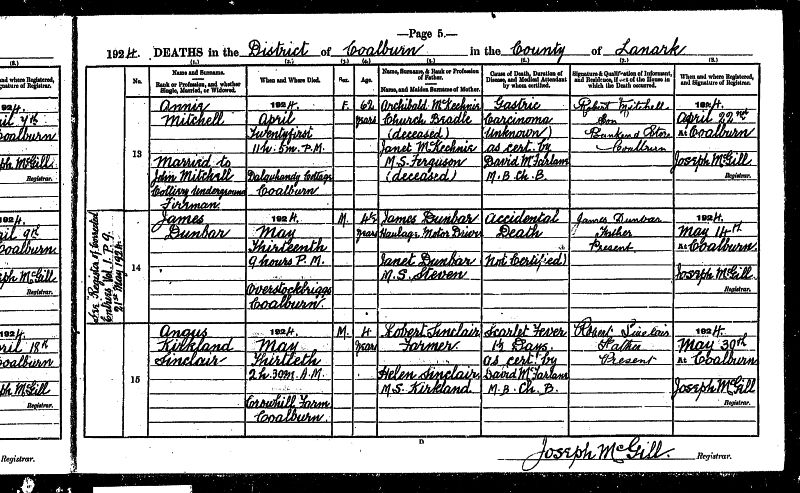 —Page 5.—
1924. DEATHS in the District of Coalburn in the County of Lanark
(1.) (2.) (3.) (4.) (5.) (6.) (7.) (8.)
No.
Name and Surname.
Rank or Profession, and whether Single, Married, or Widowed.
When and Where Died.
Sex.
Age.
Name, Surname, & Rank or Profession of Father.
Name, and Maiden Surname of Mother.
Cause of Death, Duration of Disease, and Medical Attendant by whom certified.
Signature & Qualification of Informant, and Residence, if out of the House in which the Death occurred.
When and where Registered, and Signature of Registrar.
13
Annie
Mitchell
Married to
John Mitchell
Colliery Underground
Fireman.
1924.
April
Twentyfirst
11h. 5m. P.M.
Dalquhandy Cottage
Coalburn
F.
62
years
Archibald McKechnie
Church Beadle
(deceased)
Janet McKechnie
M.S. Ferguson
(deceased)
Gastric
Carcinoma
(Unknown)
as cert. by
David McFarlane
M.B. Ch. B.
Robert Mitchell
Son
Bankend Store
Coalburn
1924.
April 22nd
At Coalburn
Joseph McGill
Registrar.
See "Register of Corrected
Entries" Vol. 1. P. 9.
21st May 1924.
14
James
Dunbar
1924.
May
Thirteenth
9 hours P.M.
Overstockbriggs
Coalburn.
M.
years
James Dunbar
Haulage Motor Driver
Janet Dunbar
M.S. Steven
Accidental
Death
(Not Certified)
James Dunbar
Father
Present
1924.
May 14th
At Coalburn
Joseph McGill
Registrar.
15
Angus
Kirkland
Sinclair
1924.
May
Thirtieth
2h. 30m. A.M.
Crowhill Farm
Coalburn.
M.
4
years
Robert Sinclair
Farmer
Helen Sinclair
M.S. Kirkland.
Scarlet Fever
Days.
as cert. by
David McFarlane
M.B. Ch. B.
Robert Sinclair
Father
Present
1924.
May 30th
At Coalburn
Joseph McGill
Registrar.
D
Joseph McGill. Registrar.